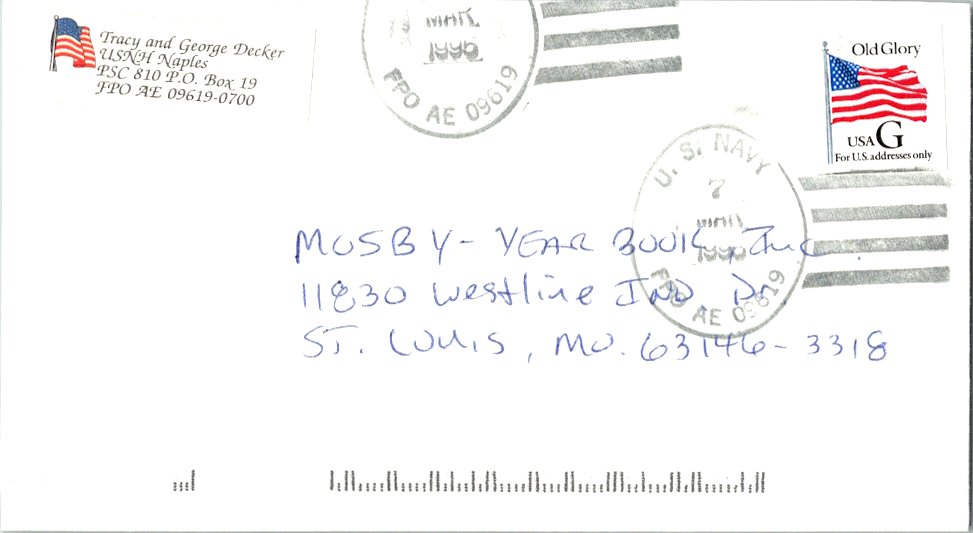 Tracy and George Decker
USNH Naples
PSC 810 P.O. Box 19
FPO AE 09619-0700
MAR
1996
FPO AE 09619
Old Glory
USA G
For U.S. addresses only
U.S. NAVY
7
MAR
FPO AE 09619
MOSBY - YEAR BOOK, Inc.
11830 Westline IND. Dr.
ST. LOUIS, MO. 63146-3318